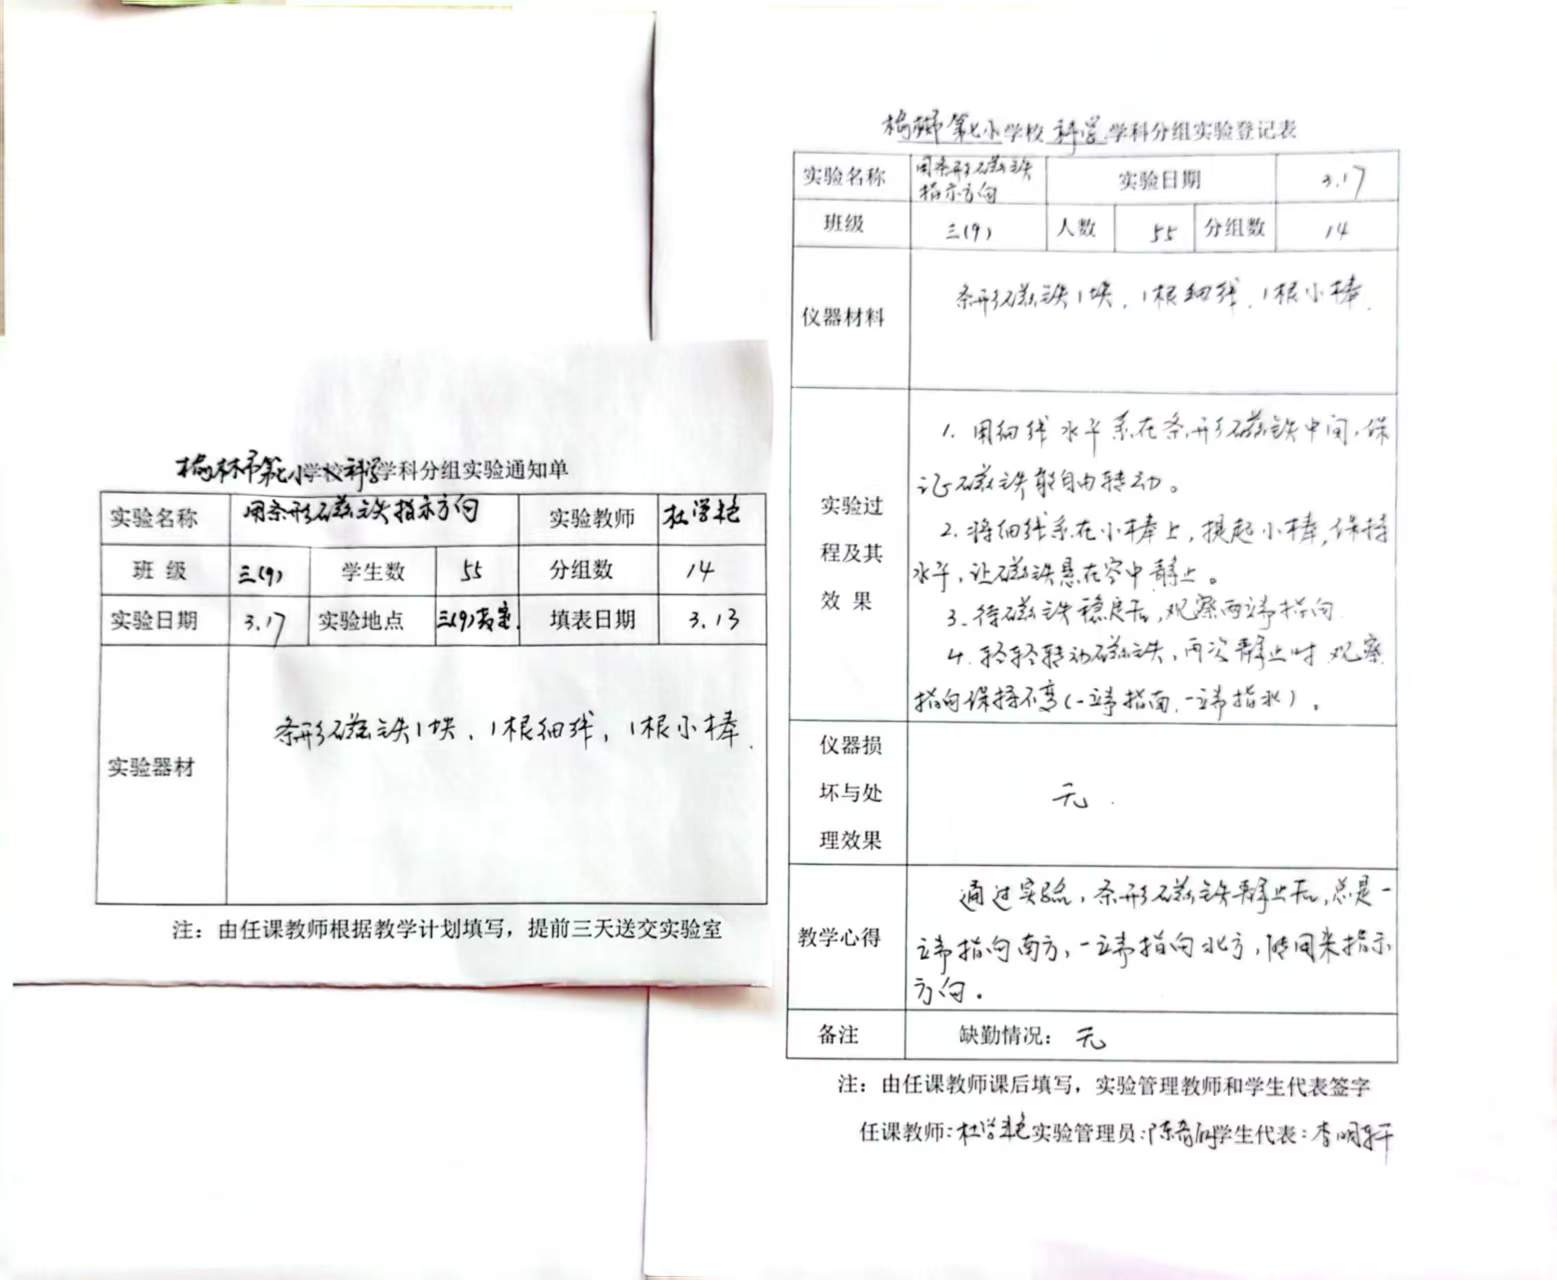 榆林市第七小学校科学学科分组实验通知单
实验名称 用条形磁铁指示方向 实验教师 杜
班 级 三(9) 学生数 55 分组数 14
实验日期 3.17 实验地点 三(9)教室 填表日期 3.13
实验器材 条形磁铁1块，1根细线，1根小棒.
注：由任课教师根据教学计划填写，提前三天送交实验室
榆林市第七小学校 科学 学科分组实验登记表
实验名称 用条形磁铁
指示方向 实验日期 3.17
班级 三(9) 人数 55 分组数 14
仪器材料 条形磁铁1块，1根细线，1根小棒.
实验过
程及其
效 果
1. 用细线水平系在条形磁铁中间，保
证磁铁能自由转动。
2. 将细线系在小棒上，提起小棒，保持
水平，让磁铁悬在空中静止。
3. 待磁铁稳定后，观察两端指向
4. 轻轻转动磁铁，再次静止时 观察
指向保持不变(一端指南，一端指北)。
仪器损
坏与处
理效果
无.
教学心得
通过实验，条形磁铁静止后，总是一
端指向南方，一端指向北方，能用来指示
方向。
备注 缺勤情况：无
注：由任课教师课后填写，实验管理教师和学生代表签字
任课教师：杜 实验管理员：陈 学生代表：李明轩